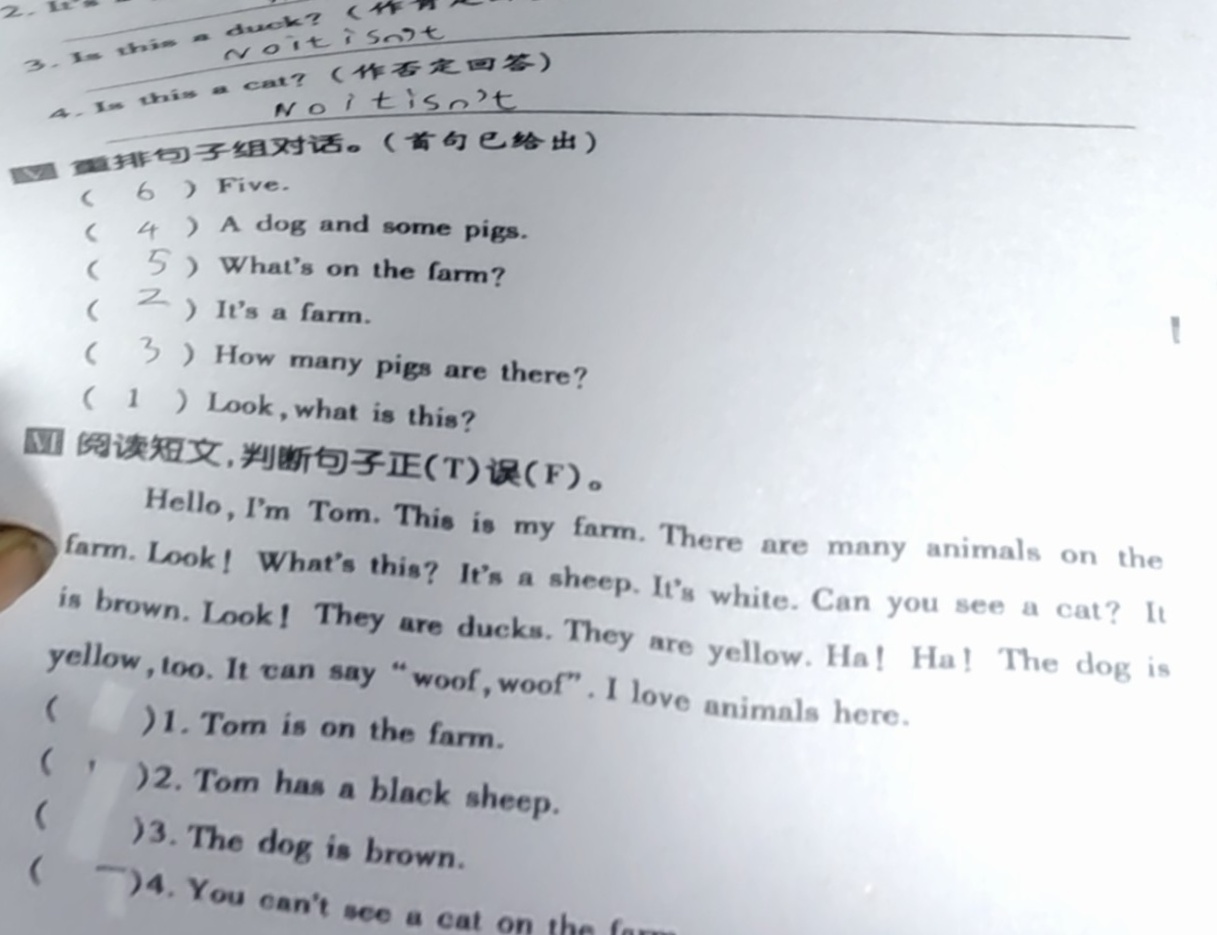 2. It's
3. Is this a duck? (作否定
No it isn't
4. Is this a cat? (作否定回答)
No it isn't
V 重排句子组对话。(首句已给出)
( 6 ) Five.
( 4 ) A dog and some pigs.
( 5 ) What's on the farm?
( 2 ) It's a farm.
( 3 ) How many pigs are there?
( 1 ) Look, what is this?
VI 阅读短文,判断句子正(T)误(F)。
Hello, I'm Tom. This is my farm. There are many animals on the
farm. Look! What's this? It's a sheep. It's white. Can you see a cat? It
is brown. Look! They are ducks. They are yellow. Ha! Ha! The dog is
yellow, too. It can say “woof, woof”. I love animals here.
( )1. Tom is on the farm.
( )2. Tom has a black sheep.
( )3. The dog is brown.
( )4. You can't see a cat on the farm